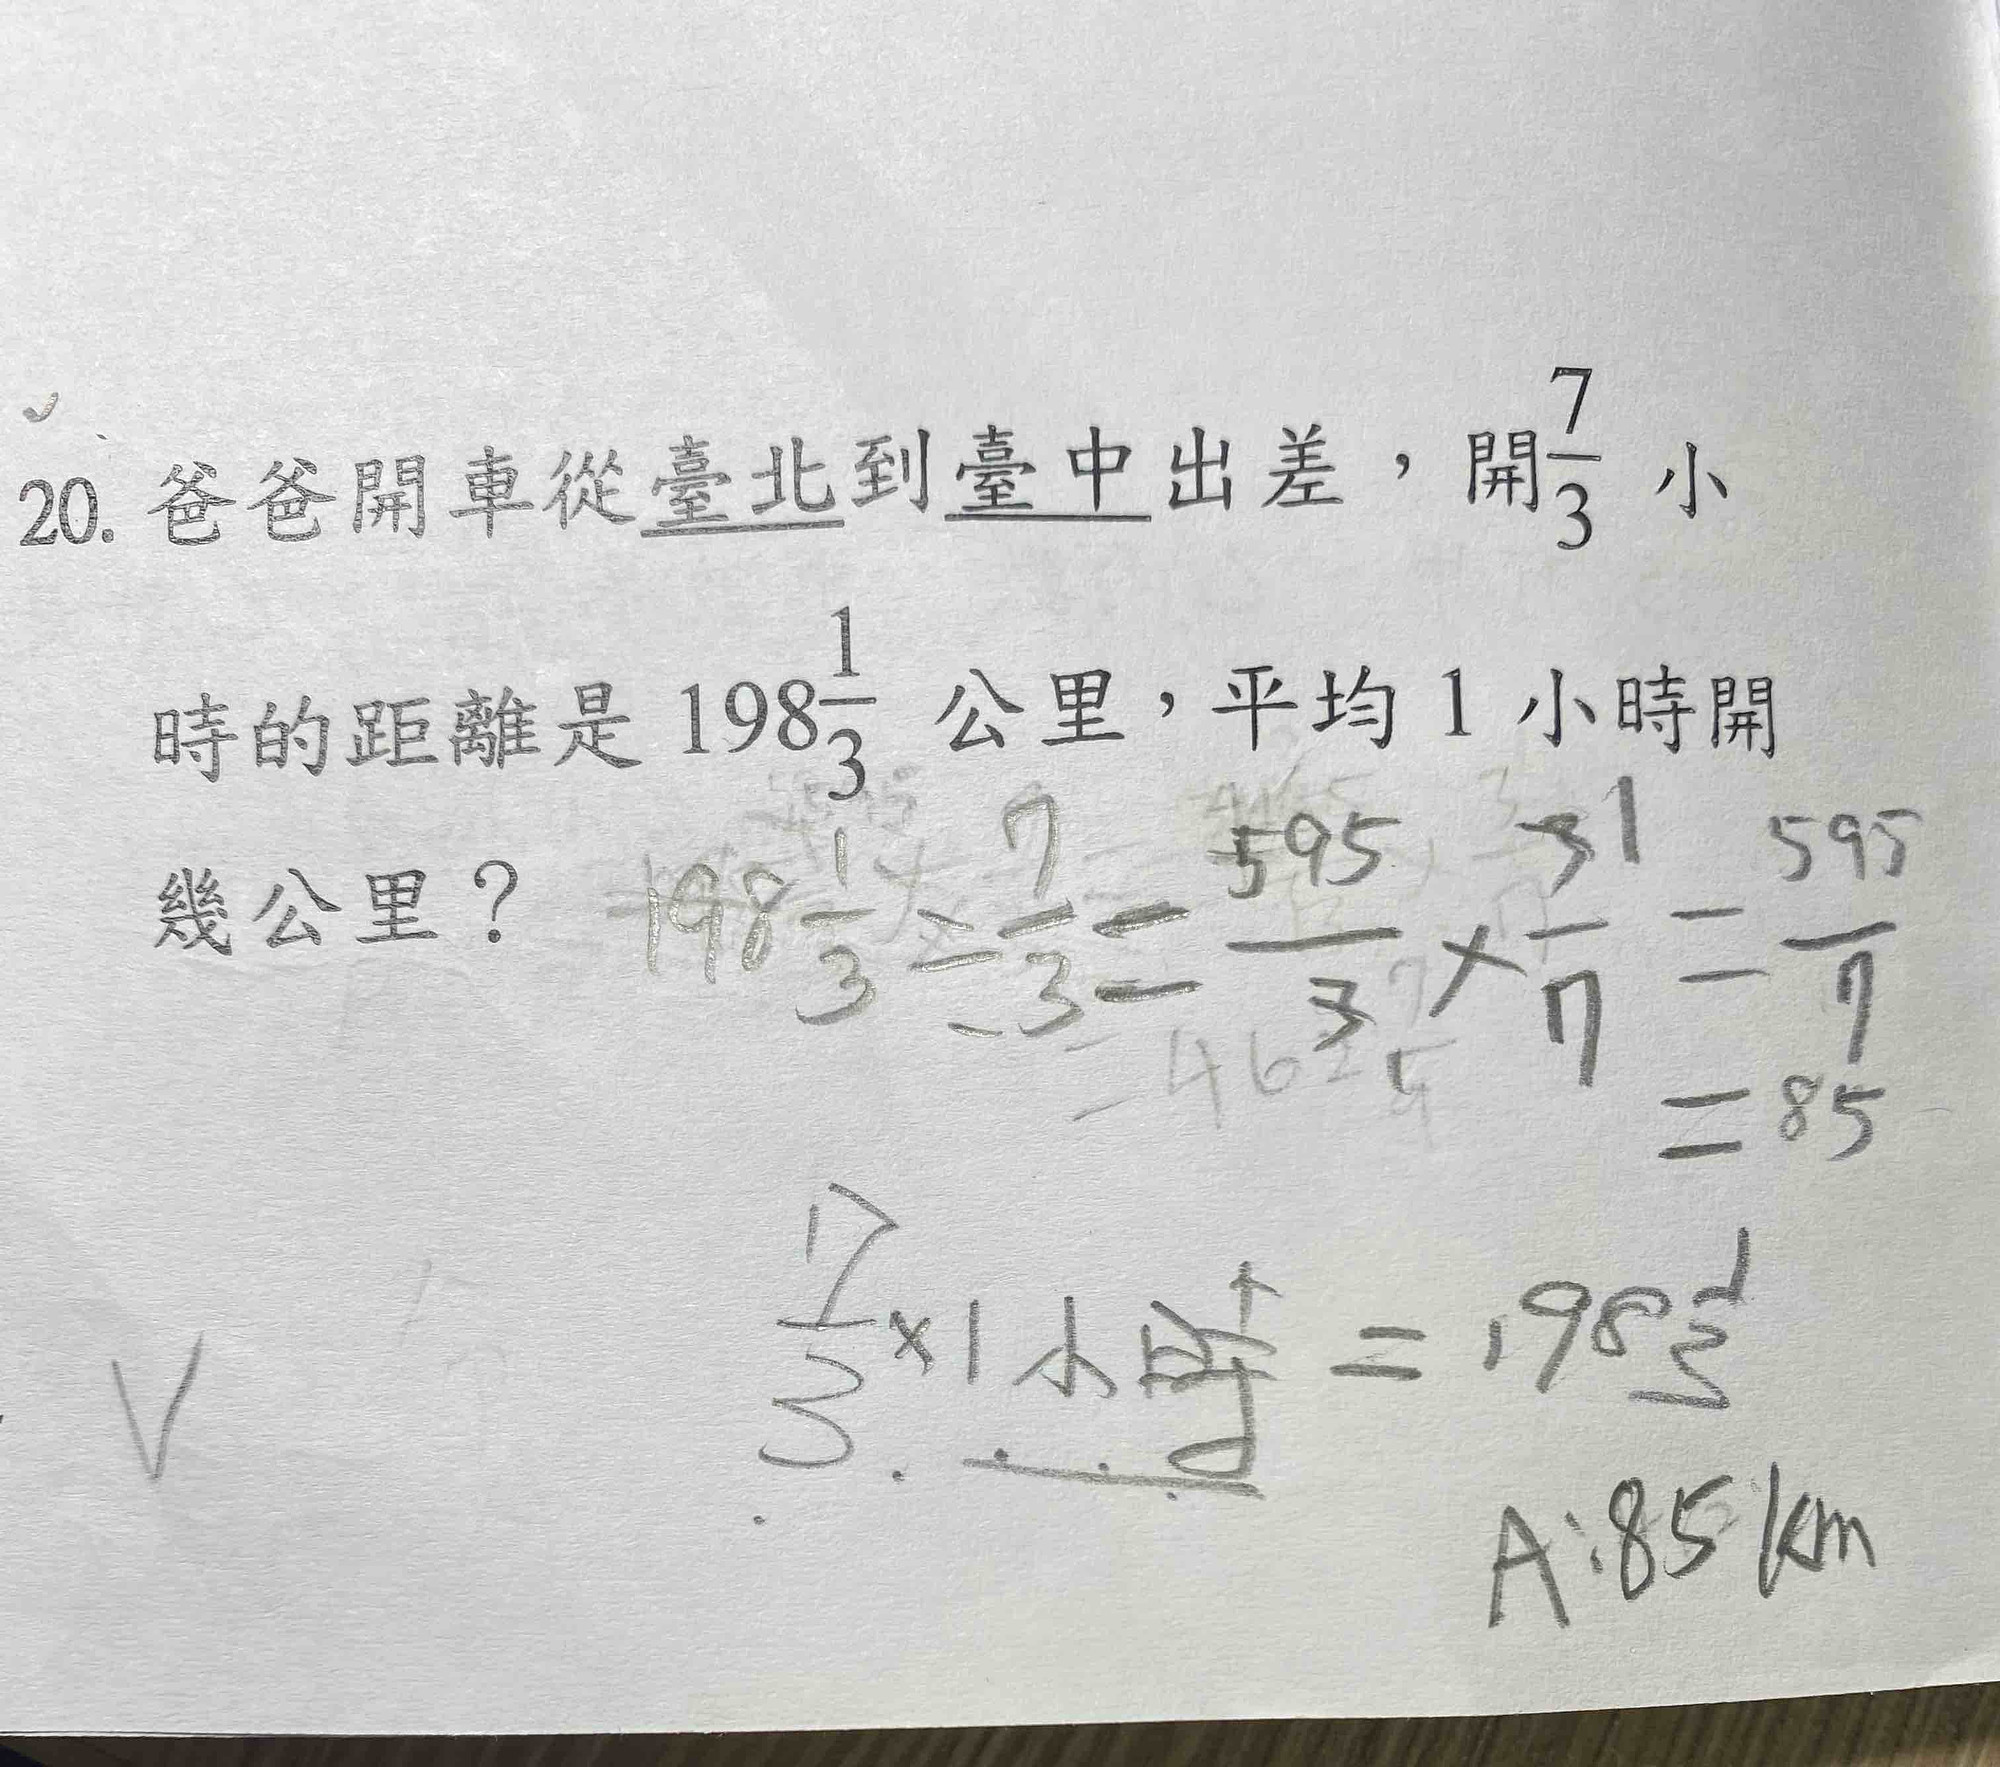 20. 爸爸開車從臺北到臺中出差，開7/3 小
時的距離是 198 1/3 公里，平均 1 小時開
幾公里？ 198 1/3 ÷ 7/3 = 595/3 × 31/7 = 595/7
= 85
7/3 × 1小時 = 198 1/3
V
A:85 km